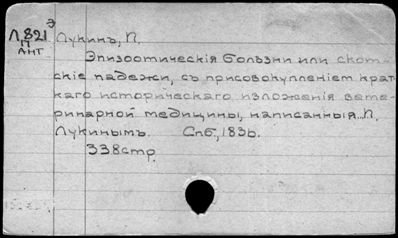 Л821 э
П
АНТ
Лукинъ, П.
Эпизоотическія болѣзни или скот-
скіе падежи, съ присовокупленіем крат-
каго историческаго изложенія вете-
ринарной медицины, написанныя П.
Лукинымъ. Спб, 1836.
338 стр.